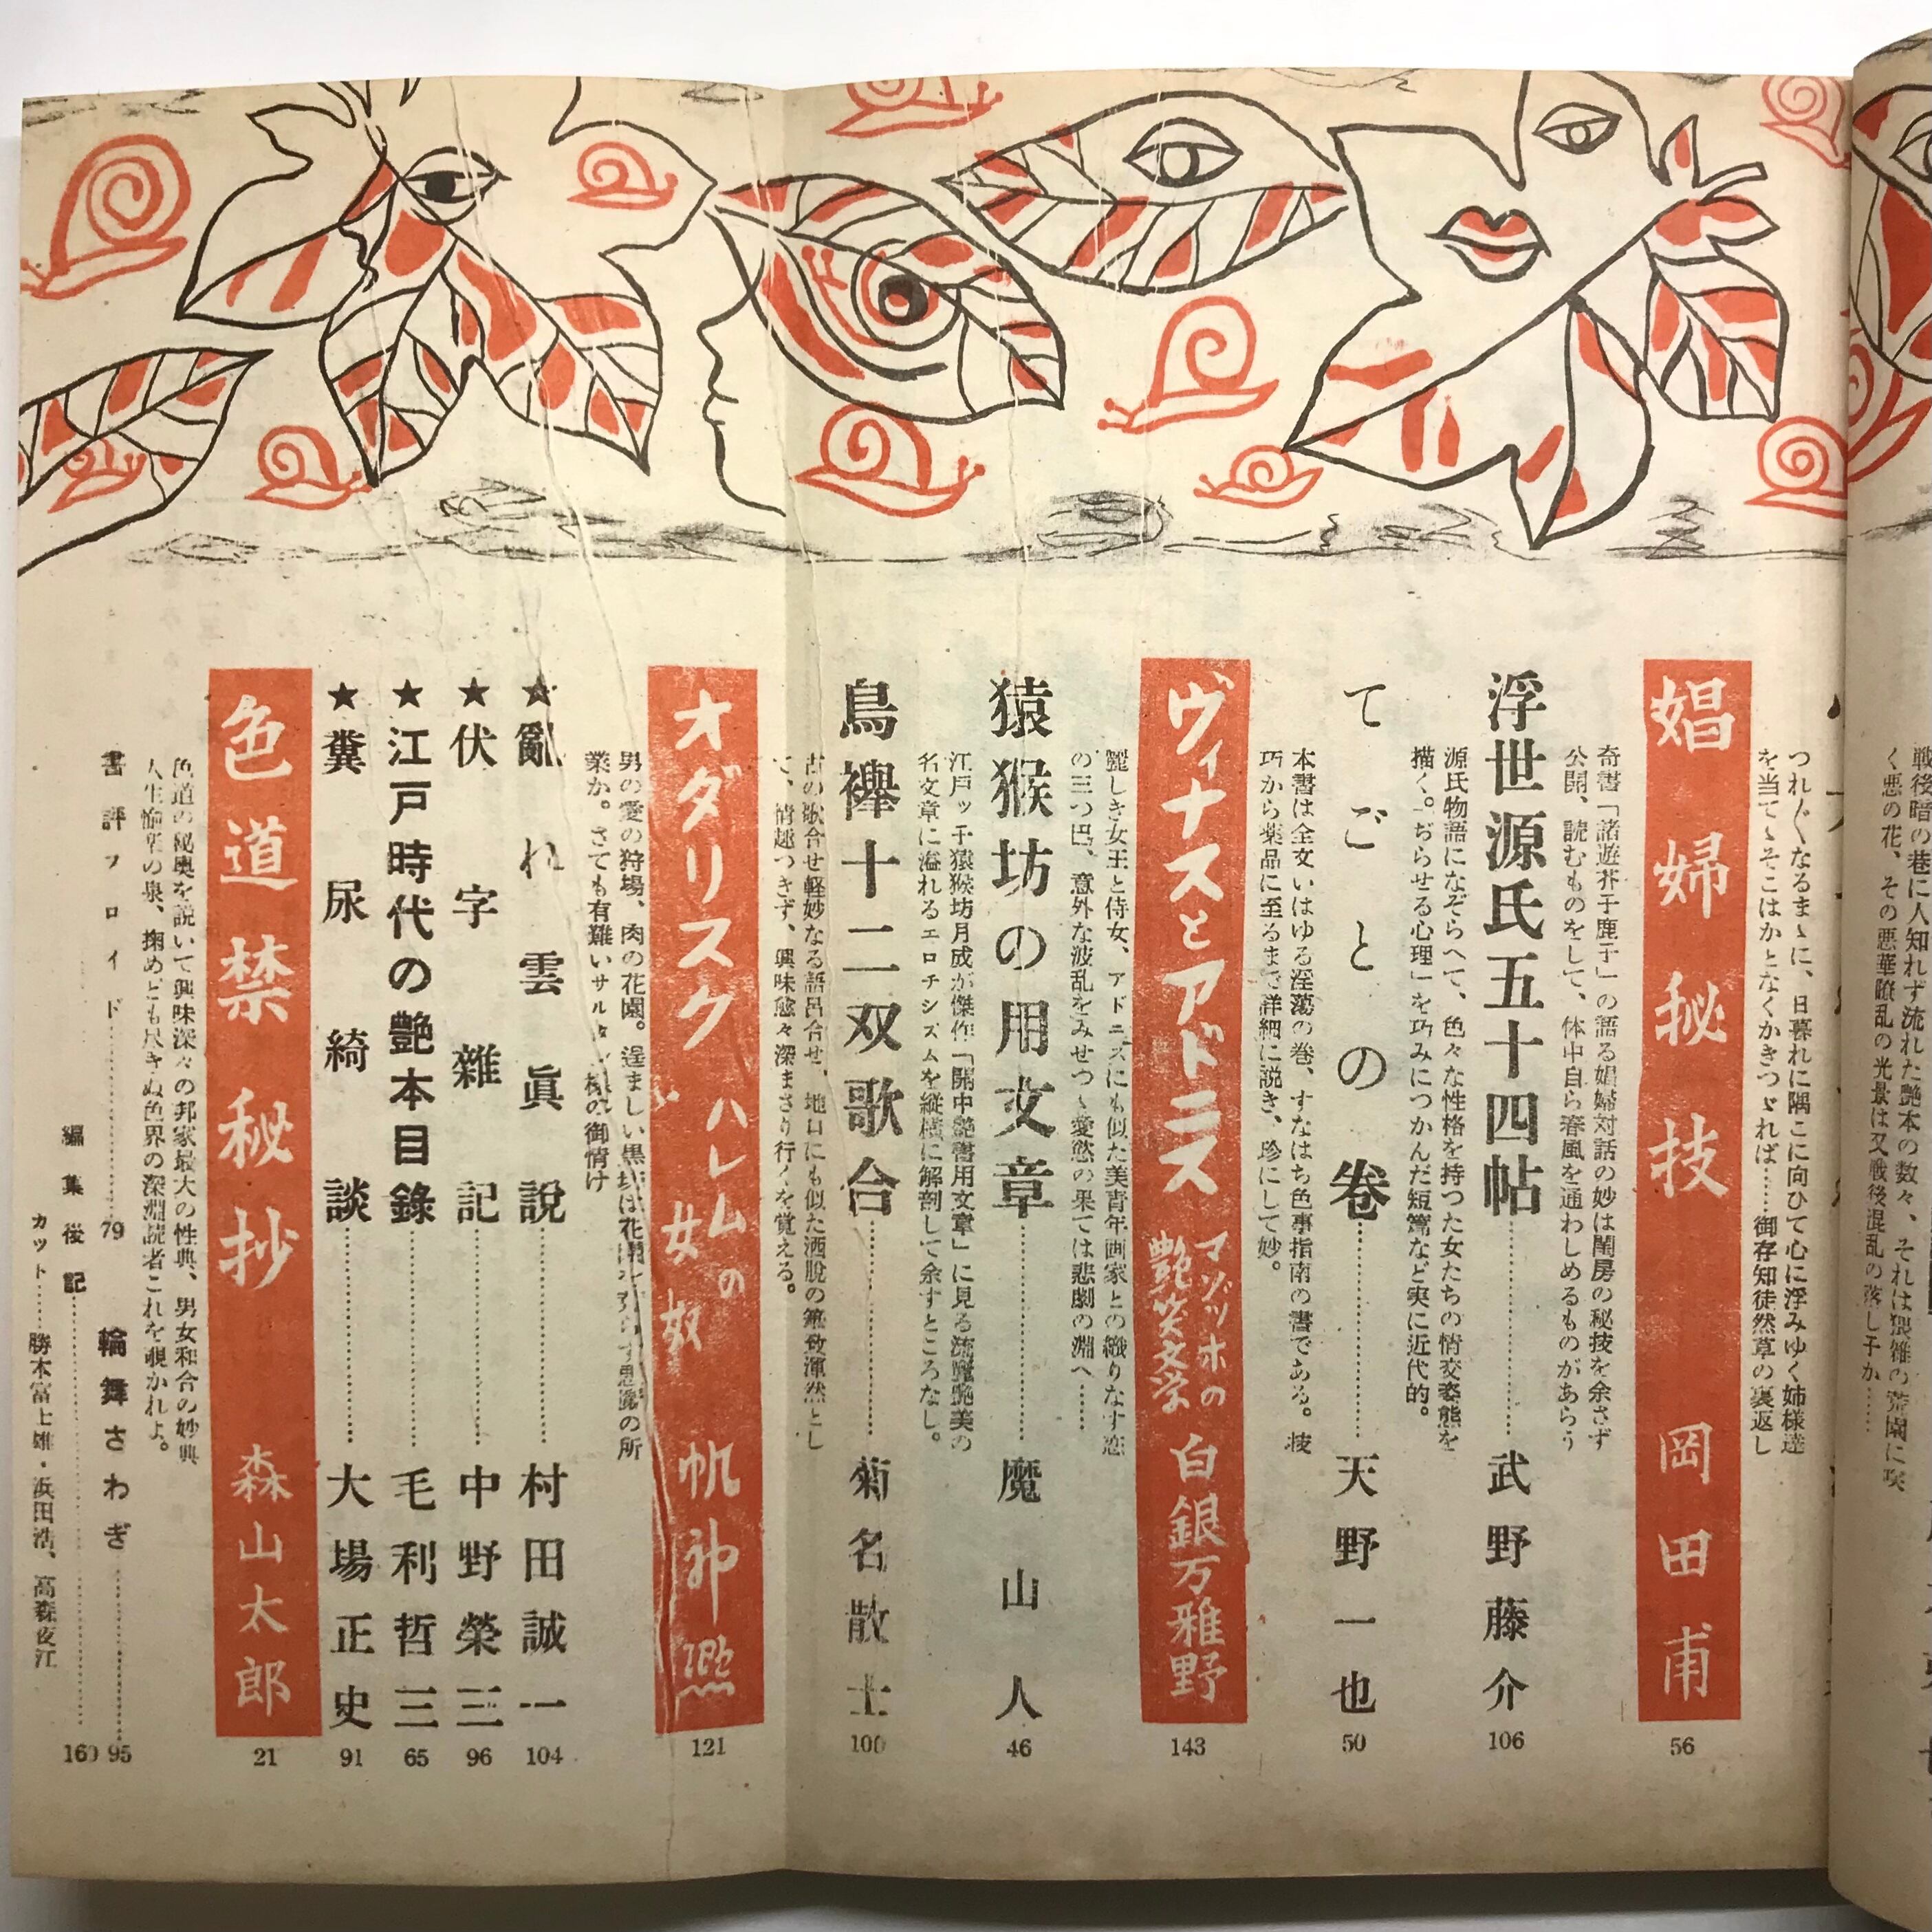 戦後暗の巷に人知れず流れた艶本の数々、それは猥雑の荒園に咲
く悪の花、その悪華瞭乱の光景は又戦後混乱の落し子か……
つれ〴〵なるまゝに、日暮れに隅こに向ひて心に浮みゆく姉様達
を当てゝそこはかとなくかきつゞれば……御存知徒然草の裏返し
娼婦秘技 岡田甫 56
奇書「諸遊芥子鹿子」の語る娼婦対話の妙は閨房の秘技を余さず
公開、読むものをして、体中自ら春風を通わしめるものがあらう
浮世源氏五十四帖……武野藤介 106
源氏物語になぞらへて、色々な性格を持つた女たちの情交姿態を
描く。「ぢらせる心理」を巧みにつかんだ短篇など実に近代的。
てごとの巻……天野一也 50
本書は全文いはゆる淫蕩の巻、すなはち色事指南の書である。技
巧から薬品に至るまで詳細に説き、珍にして妙。
ヴィナスとアドニス マゾッホの艶笑文学 白銀万雅野 143
麗しき女王と侍女、アドニスにも似た美青年画家との織りなす恋
の三つ巴、意外な波乱をみせつゝ愛慾の果ては悲劇の淵へ……
猿猴坊の用文章……魔山人 46
江戸ッ子猿猴坊月成が傑作「閨中艶書用文章」に見る流麗艶美の
名文章に溢れるエロチシズムを縦横に解剖して余すところなし。
鳥襷十二双歌合……菊名散士 100
古の歌合せ軽妙なる語呂合せ、地口にも似た洒脱の筆致渾然とし
て、情趣つきず、興味愈々深まさり行くを覚える。
オダリスク ハレムの女奴 帆神 121
男の愛の狩場、肉の花園。逞ましい黒奴は花園を
業か。さても有難いサルタン様の御情け
★亂れ雲眞説……村田誠一 104
★伏字雜記……中野榮三 96
★江戸時代の艶本目錄……毛利哲三 65
★糞尿綺談……大場正史 91
色道禁秘抄 森山太郎 21
色道の秘奥を説いて興味深々の邦家最大の性典、男女和合の妙典
人生愉楽の泉、掬めども尽きぬ色界の深淵読者これを覗かれよ。
書評フロイド……79 輪舞さわぎ……95
編集後記……160
カット……勝木富士雄・浜田浩、高森夜江